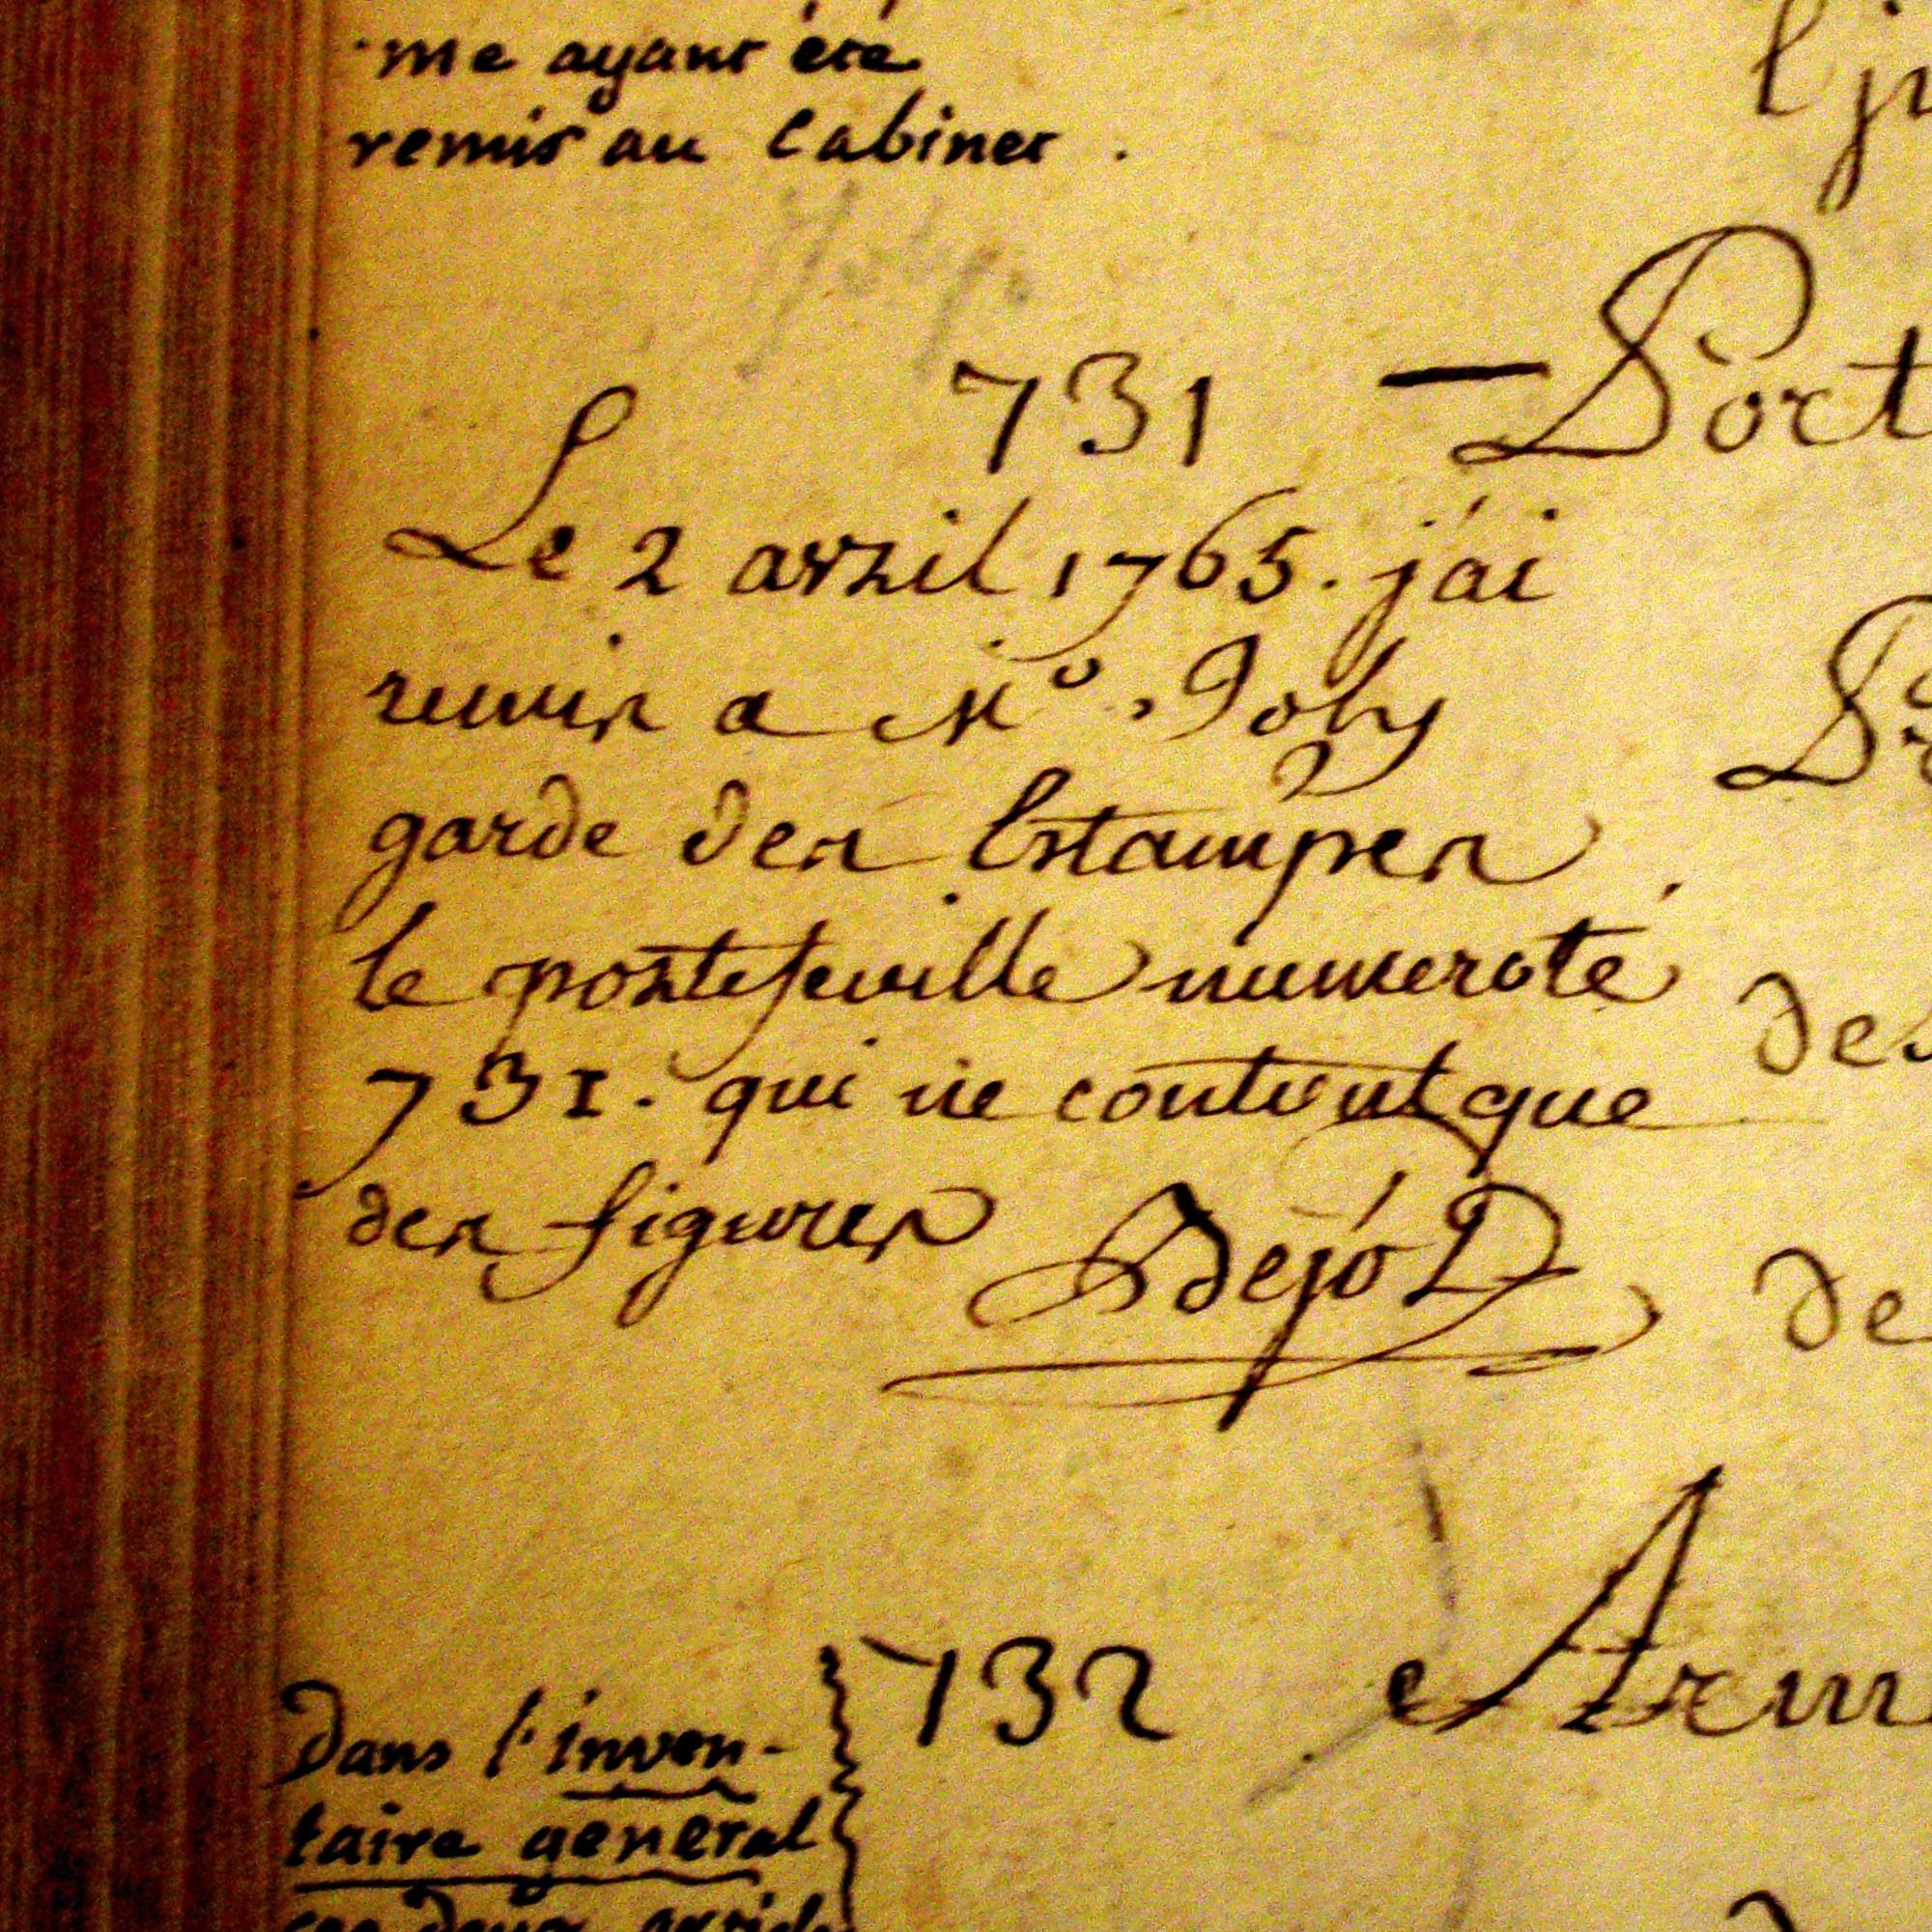 me ayant été
remis au Cabinet.
731 — Port
Le 2 avril 1765. j'ai
remis a Mr. Joly
garde des Estampes
le portefeuille numeroté
731. qui ne contient que
des figures Béjót
des
de
732 Arm
Dans l'inven-
taire général
ces deux articl